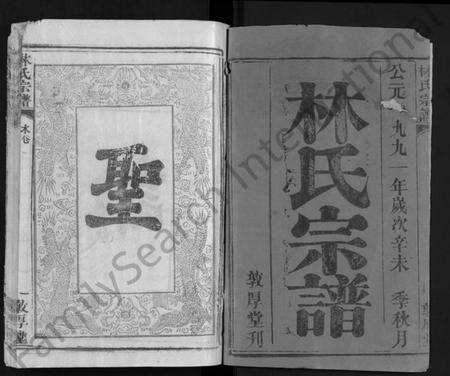 公元一九九一年歲次辛未 季秋月
林氏宗譜
敦厚堂刊
林氏宗譜
聖
林氏宗譜
末卷
一
敦厚堂
FamilySearch International